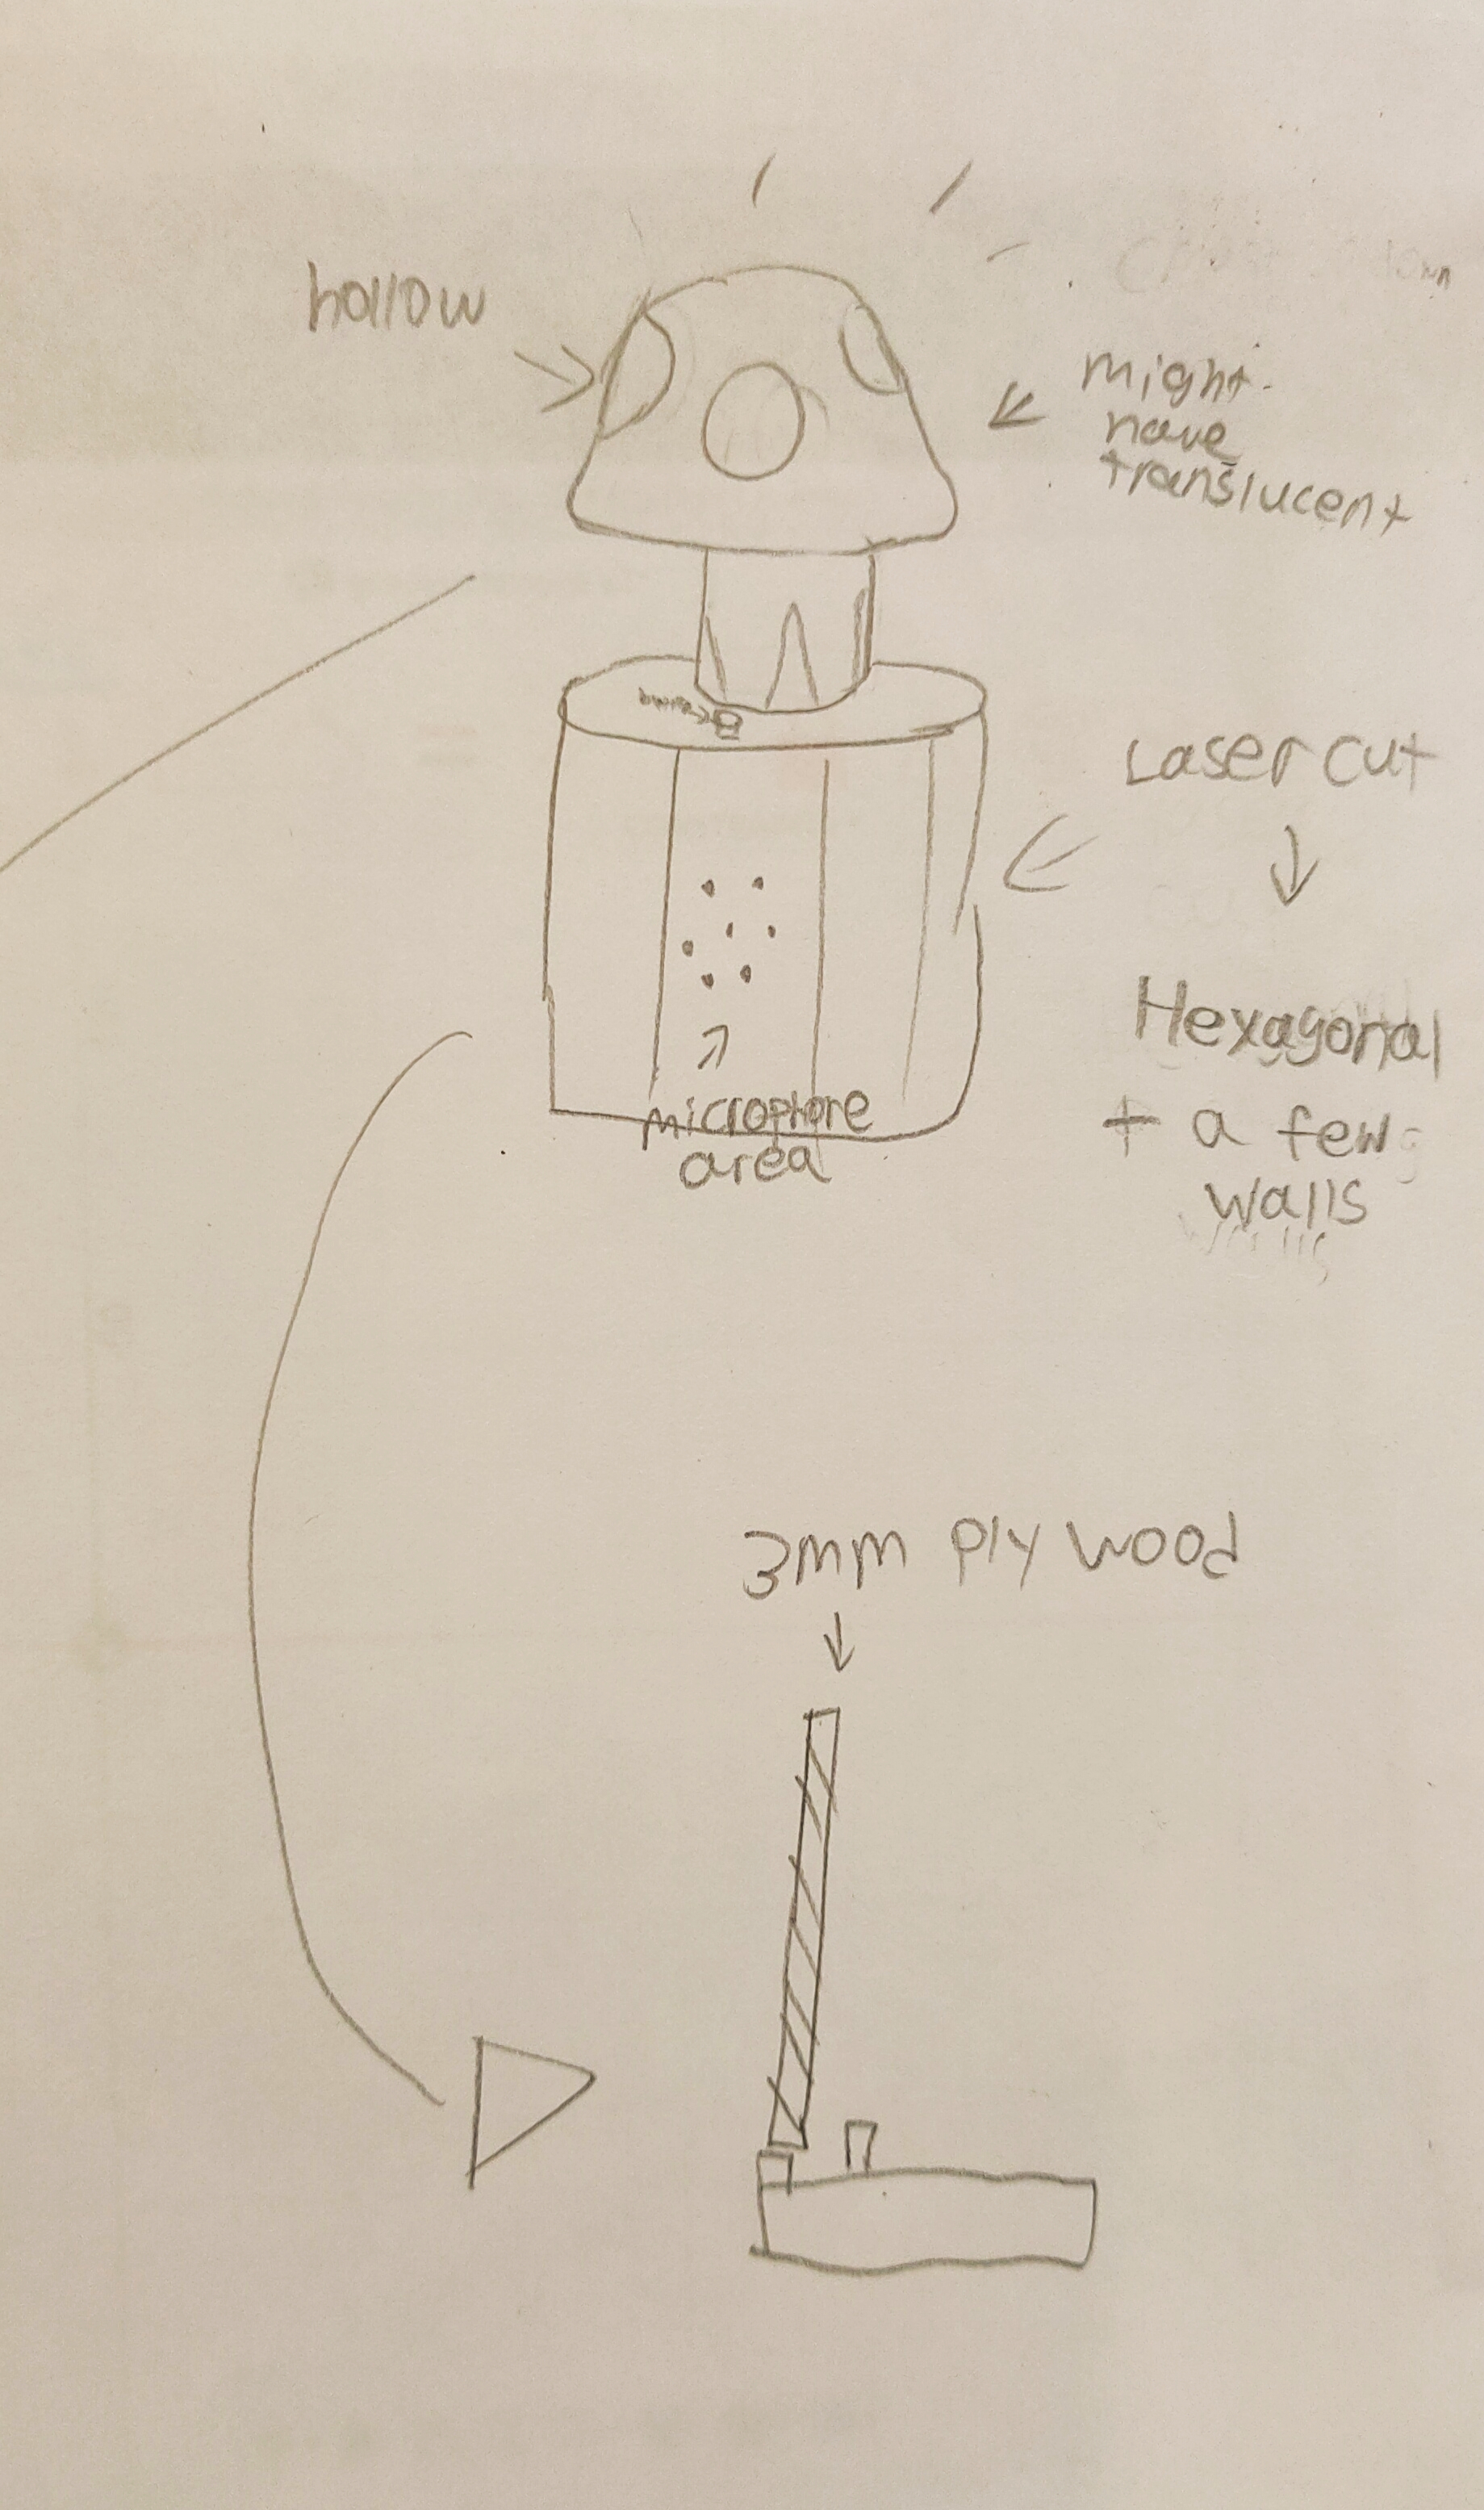 hollow
might
have
translucent
Laser cut
Hexagonal
+ a few
walls
microphone
area
3mm plywood